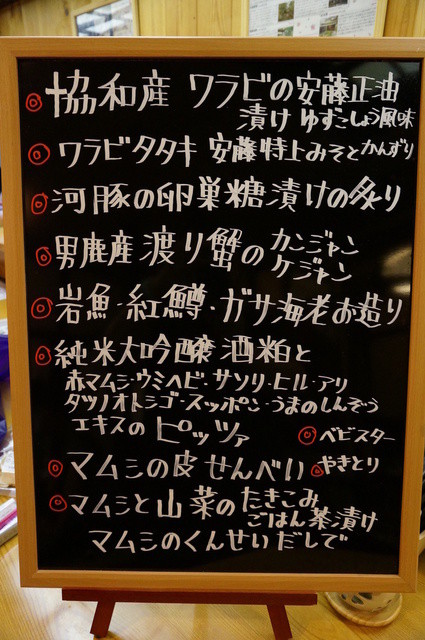 ◎協和産 ワラビの安藤正油
漬け ゆずこしょう風味
◎ワラビタタキ 安藤特上みそとかんずり
◎河豚の卵巣糖漬けの炙り
◎男鹿産渡り蟹のカンジャン
ケジャン
◎岩魚・紅鱒・ガサ海老お造り
◎純米大吟醸酒粕と
赤マムシ・ウミヘビ・サソリ・ヒル・アリ
タツノオトシゴ・スッポン・うまのしんぞう
エキスの ピッツァ
◎ベビスター
◎マムシの皮せんべい ◎やきとり
◎マムシと山菜のたきこみ
ごはん茶漬け
マムシのくんせいだしで